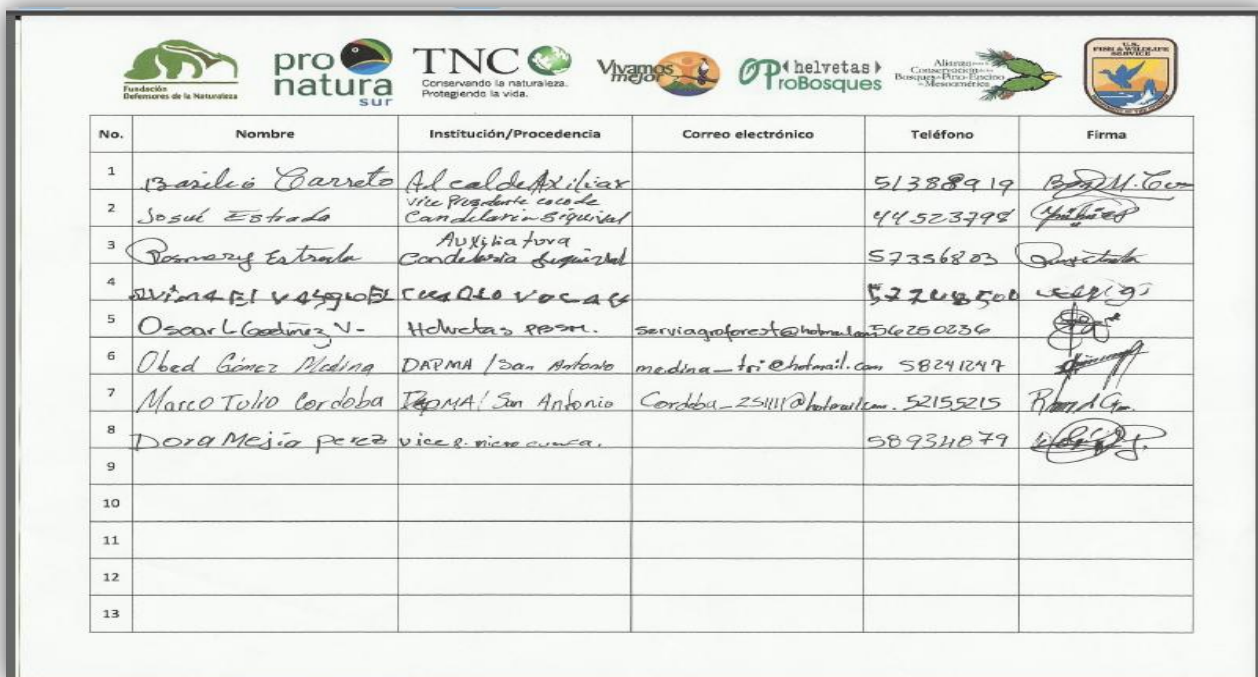 Fundación
Defensores de la Naturaleza
pro
natura
sur
TNC
Conservando la naturaleza.
Protegiendo la vida.
Vivamos
mejor
helvetas
ProBosques
Alianza para la
Conservación de los
Bosques de Pino-Encino
de Mesoamérica
U.S.
FISH & WILDLIFE
SERVICE
No. Nombre Institución/Procedencia Correo electrónico Teléfono Firma
1 Basilio Carreto Alcalde Axiliar 51388919
2 Josué Estrada Vice Presidente cocode Candelaria Siquival 44523798
3 Rosmery Estrada Auxiliatura Candelaria Siquival 57356803
4
5 Oscar L Godínez V- Helvetas PBSM. serviagroforest@hotmail.com 56250236
6 Obed Gómez Medina DAPMA / San Antonio medina_tri@hotmail.com 58241247
7 Marco Tulio Cordoba DAPMA / San Antonio Cordoba_251111@hotmail.com. 52155215
8 Dora Mejía perez vice p. micro cuenca. 58934879
9
10
11
12
13